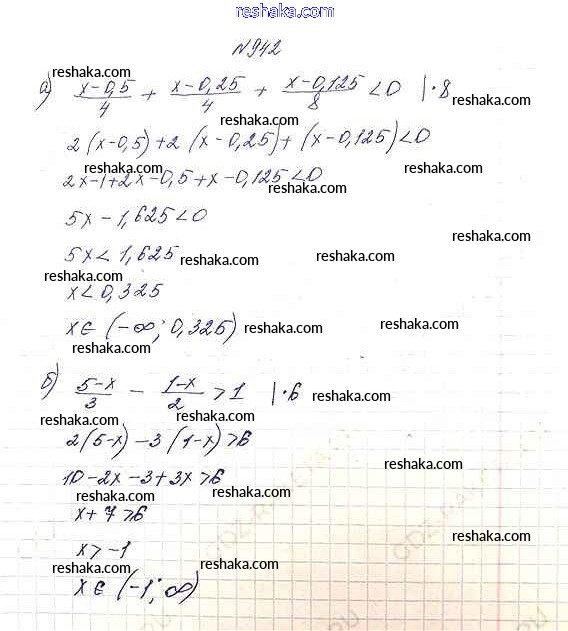 reshaka.com
№942
reshaka.com
а) (x-0,5)/4 + (x-0,25)/4 + (x-0,125)/8 < 0 |·8
reshaka.com
reshaka.com
2(x-0,5)+2(x-0,25)+(x-0,125)<0
reshaka.com reshaka.com
2x-1+2x-0,5+x-0,125<0
reshaka.com
5x-1,625<0
reshaka.com
5x<1,625 reshaka.com reshaka.com
reshaka.com
x<0,325
x∈(-∞; 0,325) reshaka.com reshaka.com
reshaka.com
б) (5-x)/3 - (1-x)/2 > 1 |·6 reshaka.com
reshaka.com reshaka.com
2(5-x)-3(1-x)>6
reshaka.com
10-2x-3+3x>6
reshaka.com reshaka.com
x+7>6
reshaka.com
x>-1
reshaka.com reshaka.com
x∈(-1; ∞)